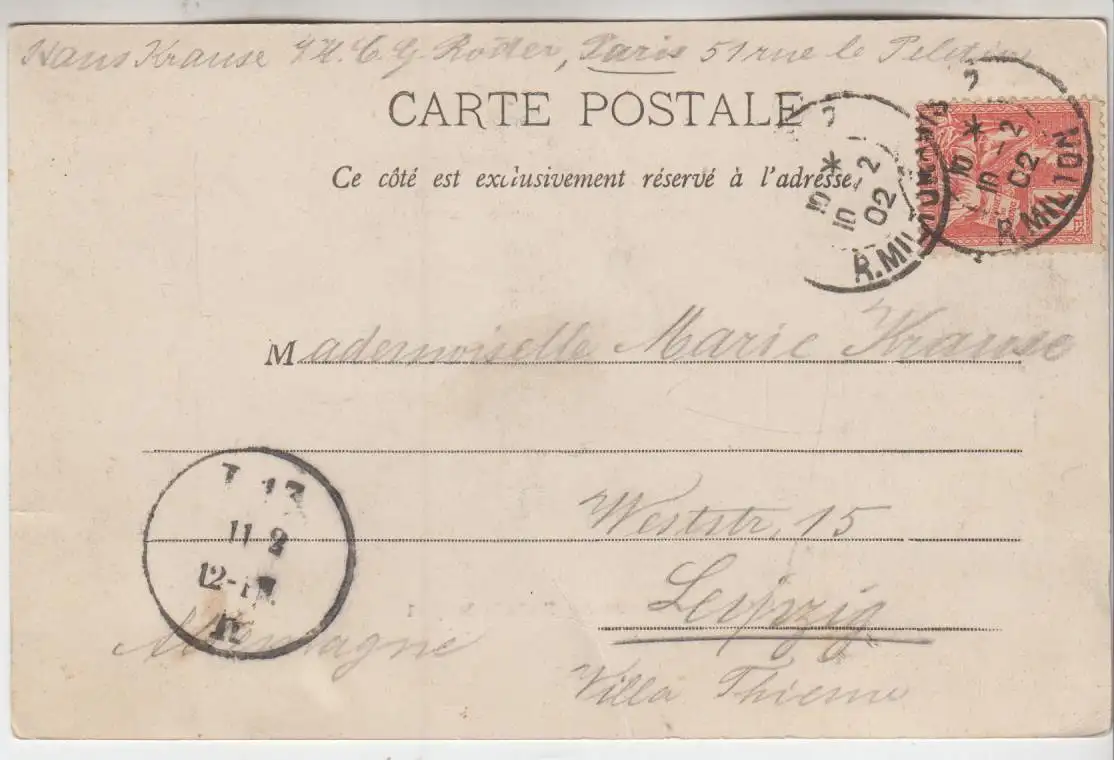 Hans Krause C. G. Röder, Paris 51 rue le Peletier
CARTE POSTALE
Ce côté est exclusivement réservé à l'adresse
10 *
10 -2
02
R. MIL
10 *
10 -2
02
R. MILTON
Mademoiselle Marie Krause
Weststr, 15
Leipzig
Allemagne
Villa Thieme
11 2